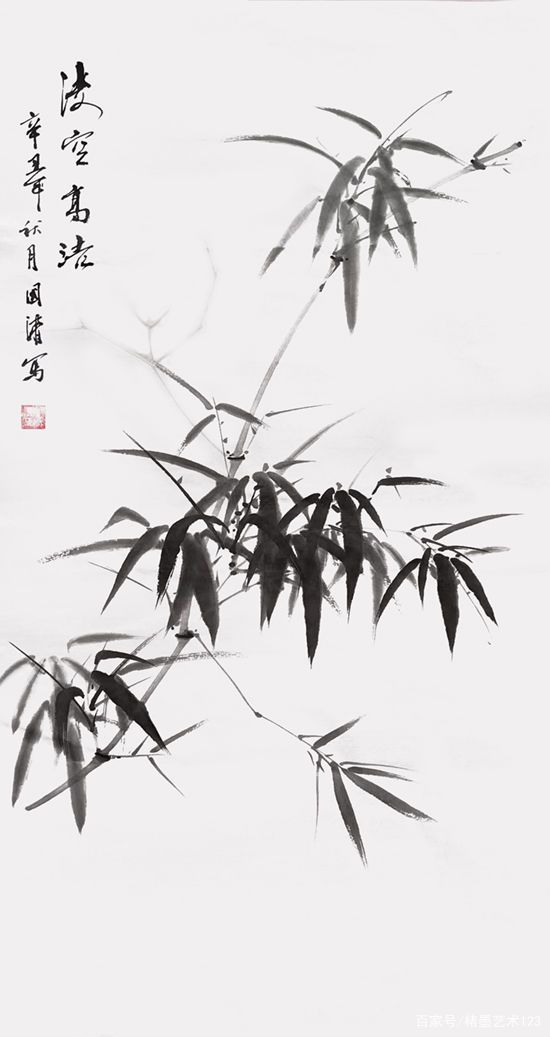 凌空高洁
辛丑年秋月国清写
百家号/精墨艺术123